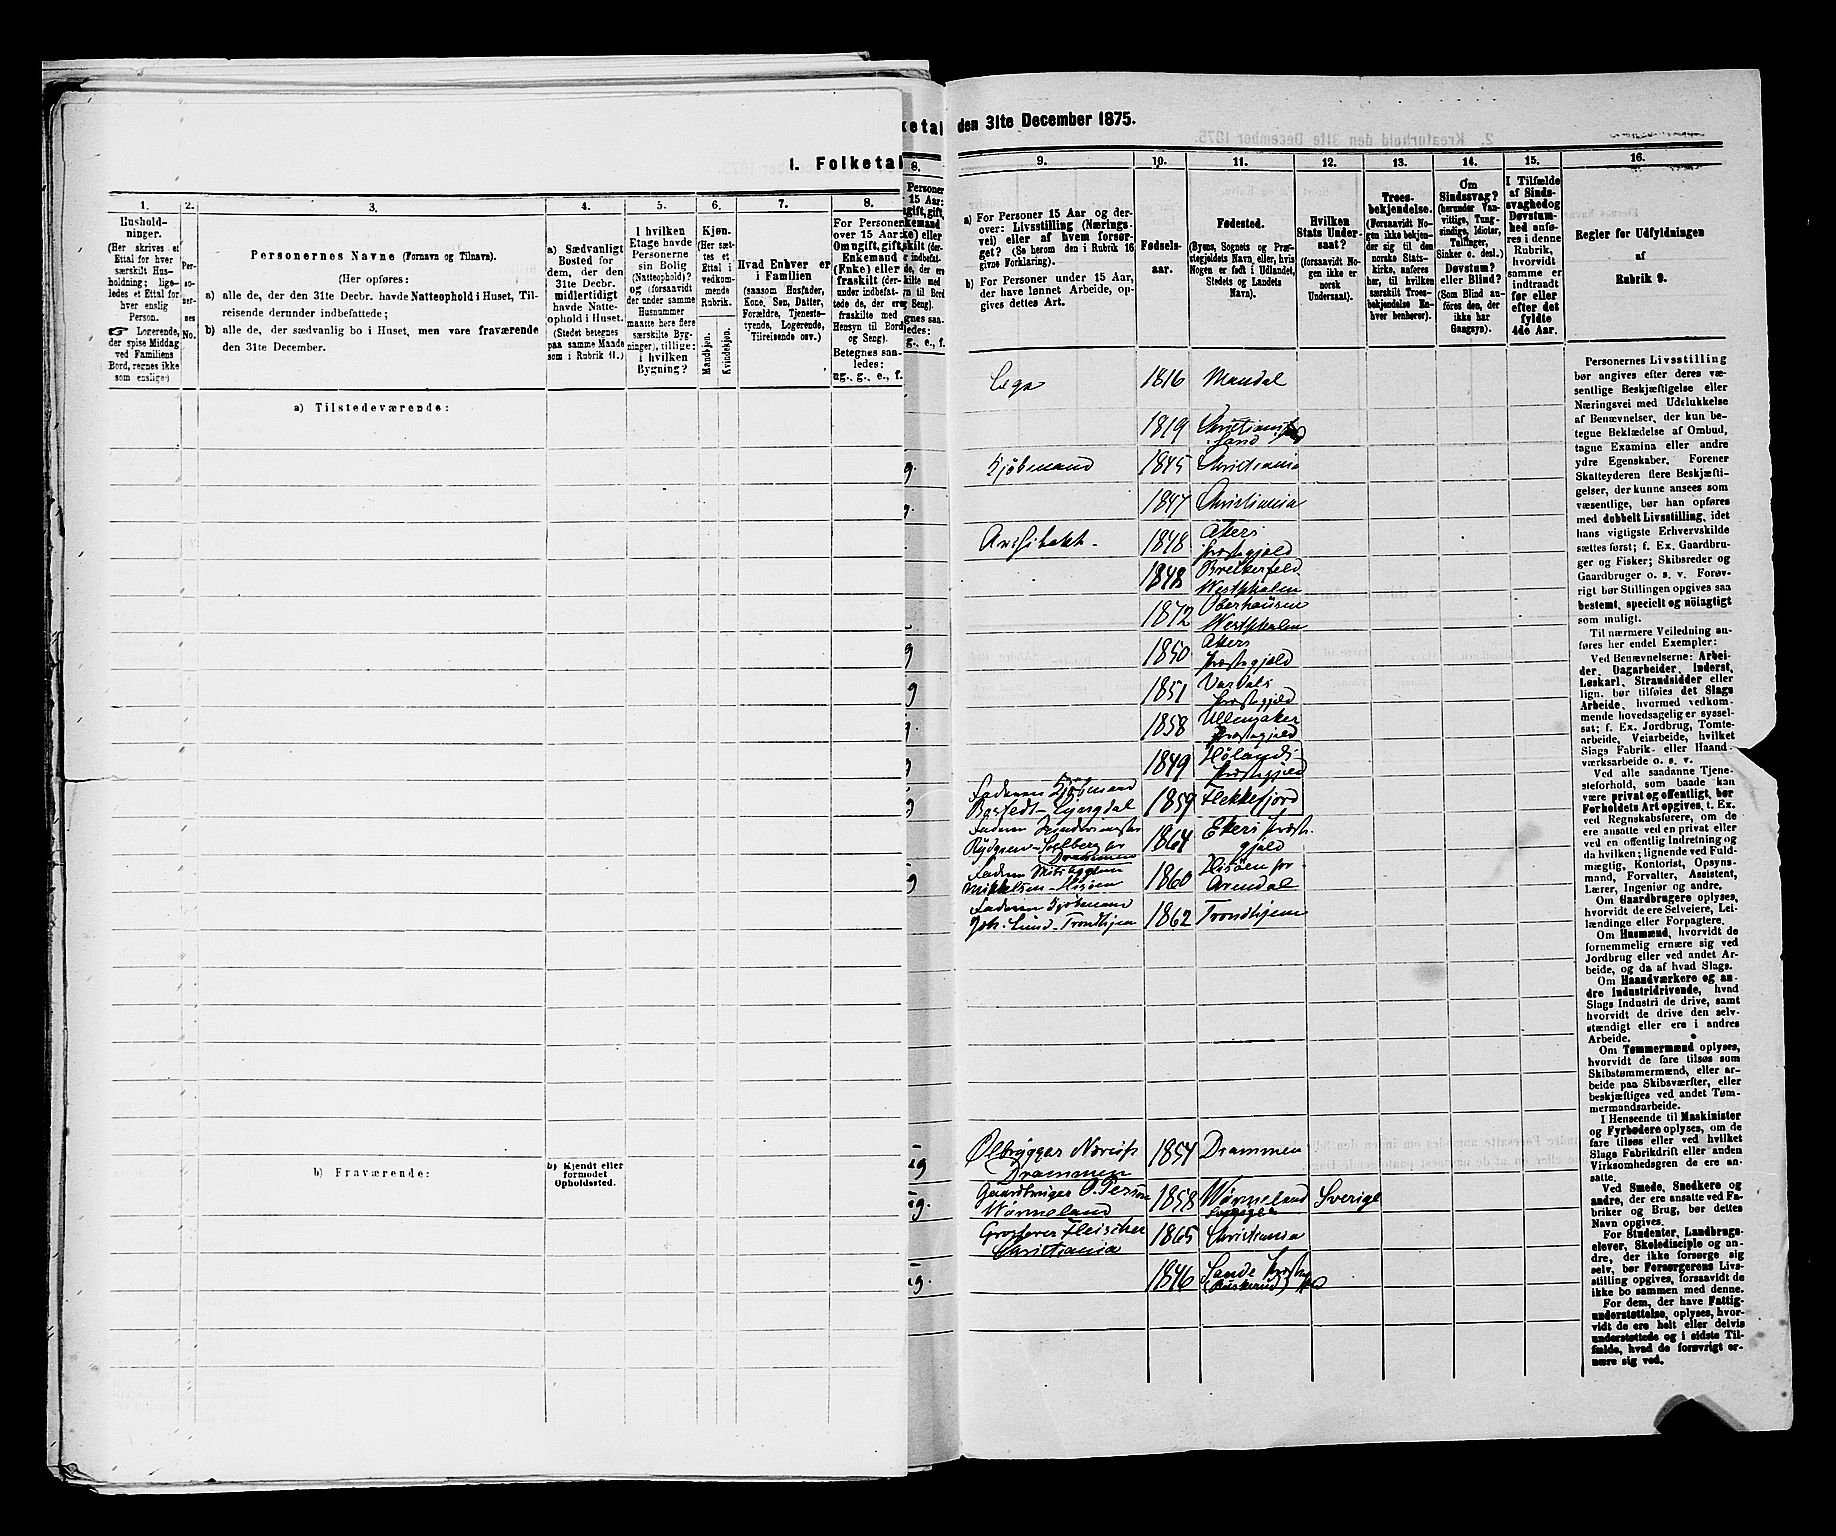 1. Folketal
1.
Hushold-
ninger.
(Her skrives et
Ettal for hver
særskilt Hus-
holdning; lige-
ledes et Ettal for
hver enslig
Person.
☞ Logerende,
der spise Middag
ved Familiens
Bord, regnes ikke
som enslige.)
2.
Per-
so-
ner-
nes
No.
3.
Personernes Navne (Fornavn og Tilnavn).
(Her opføres:
a) alle de, der den 31te Decbr. havde Natteophold i Huset, Til-
reisende derunder indbefattede;
b) alle de, der sædvanlig bo i Huset, men vare fraværende
den 31te December.
4.
a) Sædvanligt
Bosted for
dem, der den
31te Decbr.
midlertidigt
havde Natte-
ophold i Huset.
(Stedet betegnes
paa samme Maade
som i Rubrik 11.)
5.
I hvilken
Etage havde
Personerne
sin Bolig
(Natteophold)?
og (forsaavidt
der under samme
Husnummer
maatte høre flere
særskilte Byg-
ninger), tillige:
i hvilken
Bygning?
6.
Kjøn.
(Her sæt-
tes et
Ettal i
vedkom-
mende
Rubrik.
Mandkjøn.
Kvindekjøn.
7.
Hvad Enhver er
i Familien
(saasom Husfader,
Kone, Søn, Datter,
Forældre, Tjeneste-
tyende, Logerende,
Tilreisende osv.)
8.
For Personer
over 15 Aar:
Om ugift, gift,
Enkemand
(Enke) eller
fraskilt (der-
under indbefat-
tede de, der ere
fraskilte med
Hensyn til Bord
og Seng).
Betegnes saa-
ledes:
ug., g., e., f.
a) Tilstedeværende:
b) Fraværende:
b) Kjendt eller
formodet
Opholdssted.
ketal den 31te December 1875.
9.
a) For Personer 15 Aar og der-
over: Livsstilling (Nærings-
vei) eller af hvem forsør-
get? (Se herom den i Rubrik 16
givne Forklaring).
b) For Personer under 15 Aar,
der have lønnet Arbeide, op-
gives dettes Art.
10.
Fødsels-
aar.
11.
Fødested.
(Byens, Sognets og Præ-
stegjeldets Navn, eller, hvis
Nogen er født i Udlandet,
Stedets og Landets
Navn).
12.
Hvilken
Stats Under-
saat?
(forsaavidt No-
gen ikke er
norsk
Undersaat).
13.
Troes-
bekjendelse.
(Forsaavidt No-
gen ikke bekjen-
der sig til den
norske Stats-
kirke, anføres
her, til hvilken
særskilt Troes-
bekjendelse En-
hver henhører).
14.
Om
Sindssvag?
(herunder Van-
vittige, Tung-
sindige, Idioter,
Tullinger,
Sinker o. desl.)
Døvstum?
eller Blind?
(Som Blind an-
føres den, der
ikke har
Gangsyn).
15.
I Tilfælde
af Sinds-
svaghed og
Døvstum-
hed anfø-
res i denne
Rubrik,
hvorvidt
samme er
indtraadt
før eller
efter det
fyldte
4de Aar.
16.
Regler for Udfyldningen
af
Rubrik 9.
Læge 1816 Mandal
1819 Christian-
sand
Kjøbmand 1845 Christiania
1847 Christiania
Architekt. 1848 Akers
Præstegjæld
1848
Westphalen
1872 Oberhausen
Westphalen
1850 Akers
Præstegjæld
1851 Vardals
Præstegjæld
1858 Ullensaker
Præstegjæld
1849 Hølands
Præstegjæld
Faderen Kjøbmand
1859 Flekkefjord
Faderen
Solberg
Drammen
1864 Ekers Præste-
gjæld
Faderen Skibsbygger
Mikkelsen - Hisøen
1860 Hisøen for
Arendal
Faderen Kjøbmand
Joh. Lund - Trondhjem 1862 Trondhjem
Ølbrygger
Drammen
1854 Drammen
Gaardbruger P. Person
Wærmeland
1858 Wærmeland Sverige
Sverige
Grosserer Fleischer
Christiania
1865 Christiania
1846 Sande Præste
(Buskerud)
Personernes Livsstilling
bør angives efter deres væ-
sentlige Beskjæftigelse eller
Næringsvei med Udelukkelse
af Benævnelser, der kun be-
tegne Beklædelse af Ombud,
tagne Examina eller andre
ydre Egenskaber. Forener
Skatteyderen flere Beskjæfti-
gelser, der kunne ansees som
væsentlige, bør han opføres
med dobbelt Livsstilling, idet
hans vigtigste Erhvervskilde
sættes først; f. Ex. Gaardbru-
ger og Fisker; Skibsreder og
Gaardbruger o. s. v. Forøv-
rigt bør Stillingen opgives saa
bestemt, specielt og nöiagtigt
som muligt.
Til nærmere Veiledning an-
føres her endel Exempler:
Ved Benævnelserne: Arbei-
der, Dagarbeider, Inderst,
Løskarl, Strandsidder eller
lign. bør tilføies det Slags
Arbeide, hvormed vedkom-
mende hovedsagelig er syssel-
sat; f. Ex. Jordbrug, Tomte-
arbeide, Veiarbeide, hvilket
Slags Fabrik- eller Haand-
værksarbeide o. s. v.
Ved alle saadanne Tjene-
steforhold, som baade kan
være privat og offentligt, bør
Forholdets Art opgives, t. Ex.
ved Regnskabsførere, om de
ere ansatte ved en privat eller
ved en offentlig Indretning og
da hvilken; lignende ved Fuld-
mægtig, Kontorist, Opsyns-
mand, Forvalter, Assistent,
Lærer, Ingeniør og andre.
Om Gaardbrugere oplyses,
hvorvidt de ere Selveiere, Lei-
lændinge eller Forpagtere.
Om Husmænd, hvorvidt de
fornemmelig ernære sig ved
Jordbrug eller ved andet Ar-
beide, og da af hvad Slags.
Om Haandværkere og an-
dre Industridrivende, hvad
Slags Industri de drive, samt
hvorvidt de drive den selv-
stændigt eller ere i andres
Arbeide.
Om Tømmermænd oplyses,
hvorvidt de fare tilsøs som
Skibstømmermænd, eller ar-
beide paa Skibsværfter, eller
beskjæftiges ved andet Tøm-
mermandsarbeide.
I Henseende til Maskinister
og Fyrbødere oplyses, om de
fare tilsøs eller ved hvilket
Slags Fabrikdrift eller anden
Virksomhedsgren de ere an-
satte.
Ved Smede, Snedkere og
andre, der ere ansatte ved Fa-
briker og Brug, bør dettes
Navn opgives.
For Studenter, Landbrugs-
elever, Skoledisciple og an-
dre, der ikke forsørge sig
selv, bør Forsørgerens Livs-
stilling opgives, forsaavidt de
ikke bo sammen med denne.
For dem, der have Fattig-
understøttelse, oplyses, hvor-
vidt de ere helt eller delvis
understøttede og i sidste Til-
fælde, hvad de forøvrigt er-
nære sig ved.